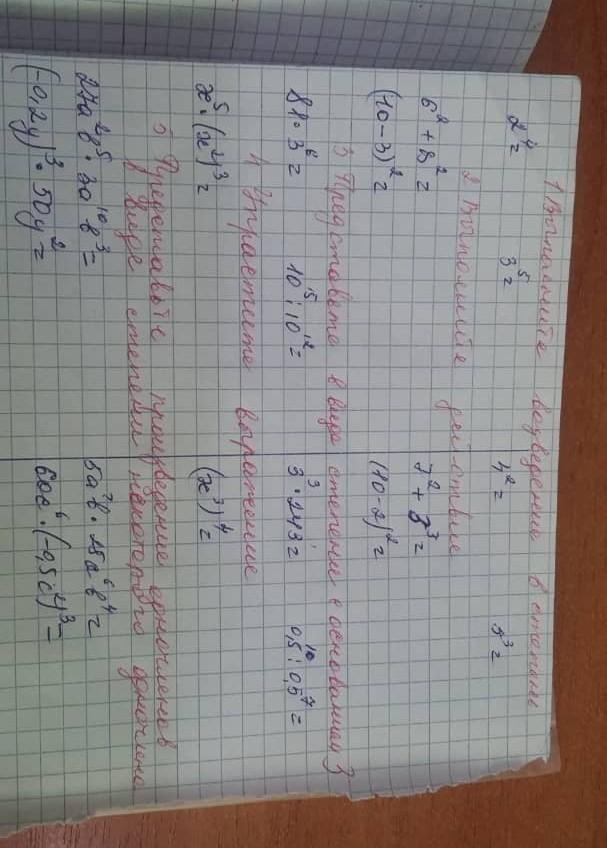 1 Выполните возведение в степень
2⁴= 3⁵= 4²= 5³=
2 Выполните действие
6²+8²= 7²+3³=
(10-3)²= (10-2)²=
3 Представьте в виде степени с основанием 3
81·3⁶= 10¹⁵:10¹²= 3³·243= 0,5¹⁰:0,5⁷=
4 Упрастите выражение
x⁵·(x²)³= (x³)⁴=
5 Представьте произведение одночленов
в виде степени некоторого одночлена
27a²b⁵·3a¹⁰b³= 5a²b·25a⁶b⁴=
(-0,2y)³·50y²= 60c⁶·(-0,5c⁴)³=